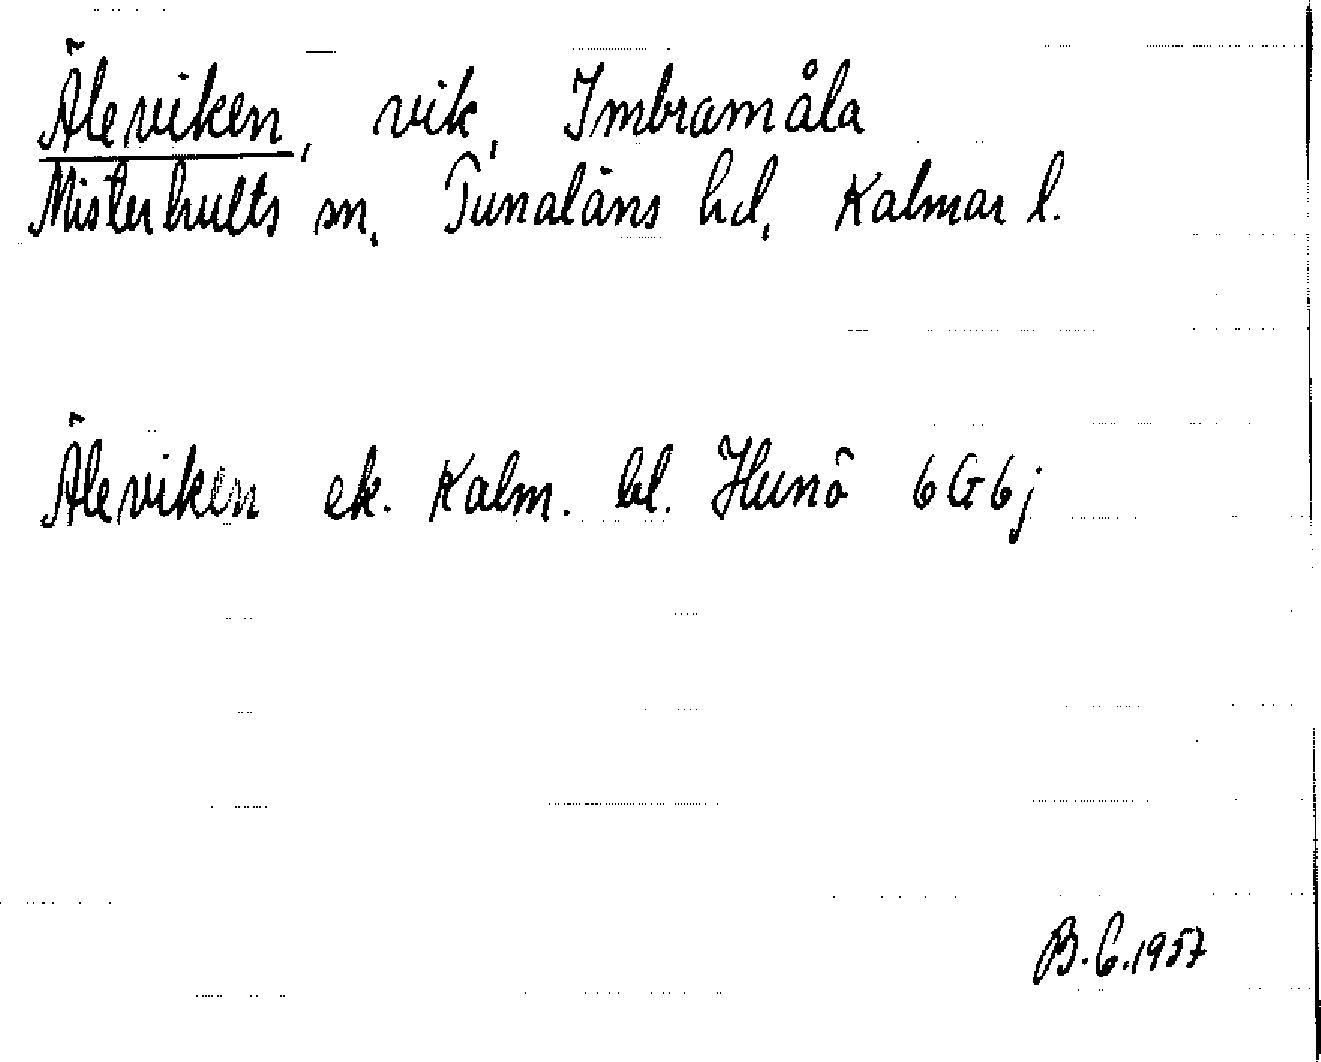 Äleviken, vik, Imbramåla
Misterhults sn, Tunaläns hd, Kalmar l.
Äleviken ek. Kalm. bl. Hunö 6G6j
B.C.1957